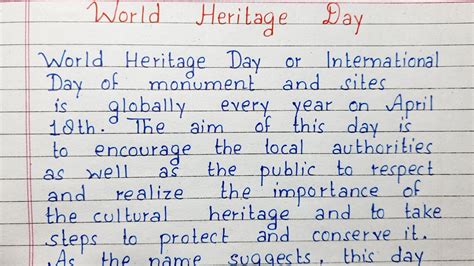 World Heritage Day
World Heritage Day or International
Day of monument and sites
is globally every year on April
18th. The aim of this day is
to encourage the local authorities
as well as the public to respect
and realize the importance of
the cultural heritage and to take
steps to protect and conserve it.
As the name suggests, this day